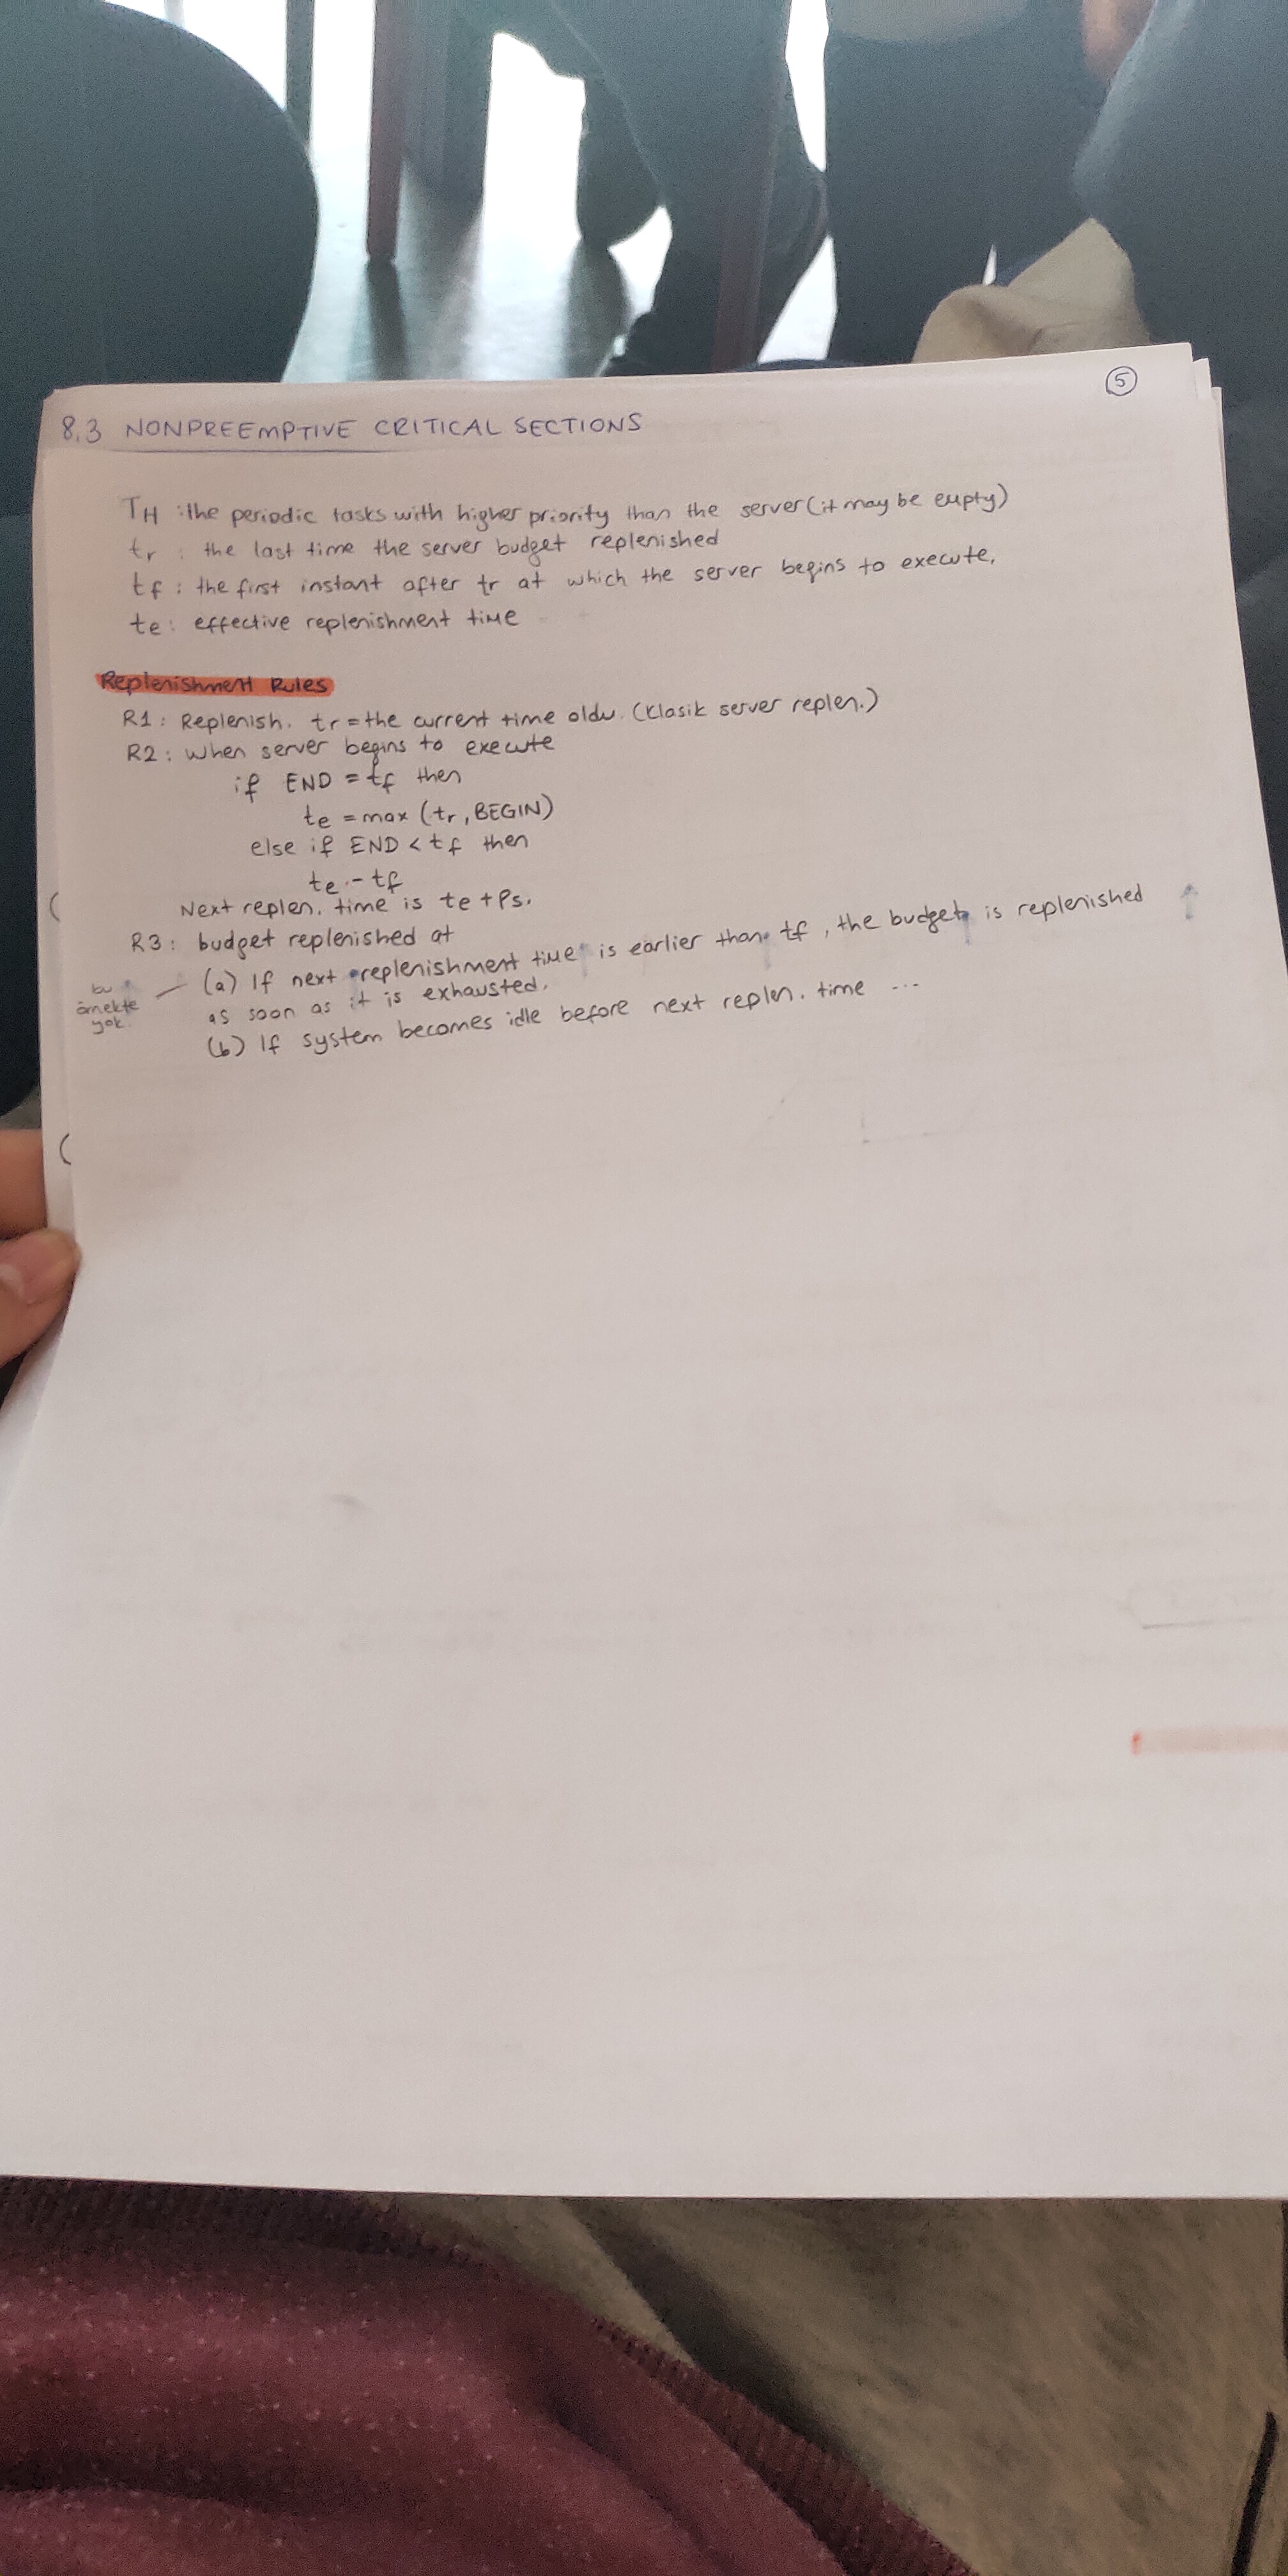 5
8.3 NONPREEMPTIVE CRITICAL SECTIONS
TH : the periodic tasks with higher priority than the server (it may be empty)
tr : the last time the server budget replenished
tf : the first instant after tr at which the server begins to execute.
te : effective replenishment time
Replenishment Rules
R1 : Replenish. tr = the current time oldu. (Klasik server replen.)
R2 : When server begins to execute
if END = tf then
te = max (tr, BEGIN)
else if END < tf then
te - tf
Next replen. time is te + Ps.
R3 : budget replenished at
(a) If next replenishment time is earlier than tf, the budget is replenished
as soon as it is exhausted.
bu örnekte yok.
(b) If system becomes idle before next replen. time ...